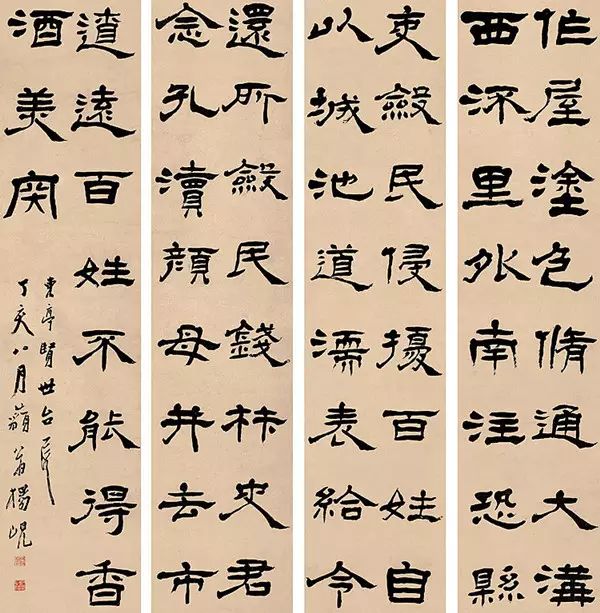 作屋塗色脩通大溝
西流里外南注恐縣
吏斂民侵擾百姓自
以城池道濡麥給令
還所斂民錢材史君
念孔瀆顏母井去市
遼遠百姓不能得香
酒美肉
東亭賢世台
丁亥八月藐翁楊峴